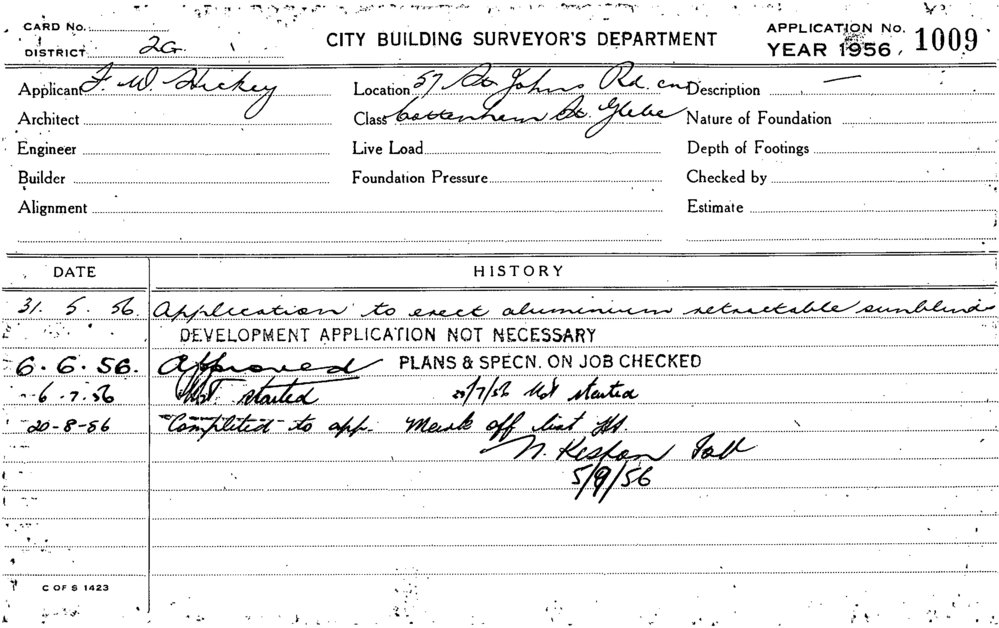 CARD No.
DISTRICT 2G
CITY BUILDING SURVEYOR'S DEPARTMENT
APPLICATION No. 1009
YEAR 1956
Applicant F. W. Hickey
Location 57 St. Johns Rd. cnr
Description —
Architect
Class Cottenham St. Glebe
Nature of Foundation
Engineer
Live Load
Depth of Footings
Builder
Foundation Pressure
Checked by
Alignment
Estimate
DATE HISTORY
31. 5. 56. Application to erect aluminium retractable sunblind
DEVELOPMENT APPLICATION NOT NECESSARY
6. 6. 56. Approved PLANS & SPECN. ON JOB CHECKED
6. 7. 56 Not started /7/56 Not started
20-8-56 Completed to app. Mark off list
N.
5/9/56
C OF S 1423